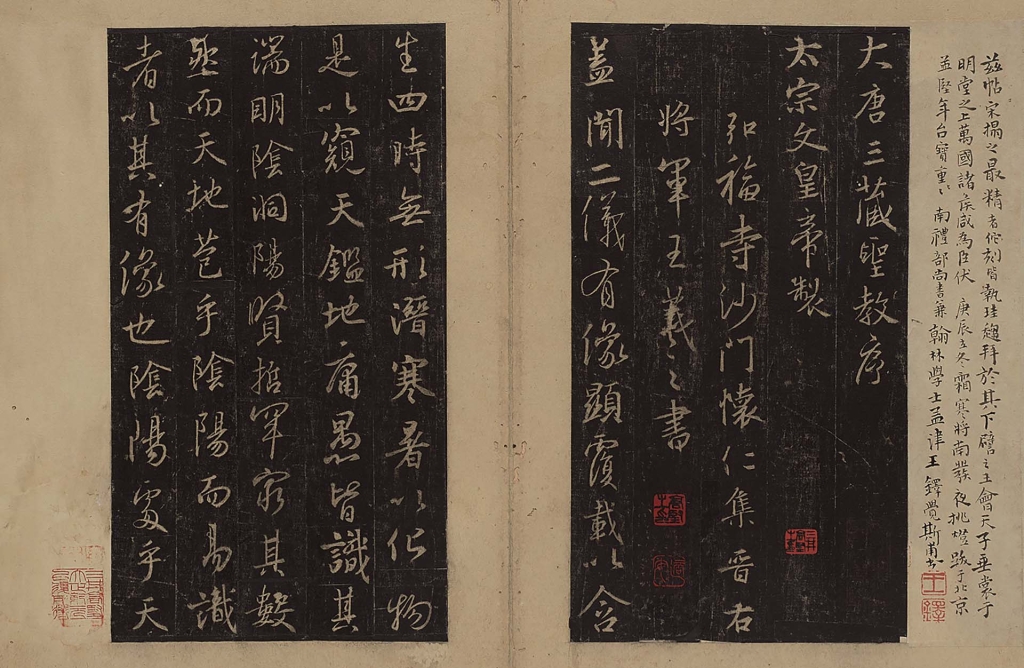 茲帖宋搨之最精者他刻皆執珪趨拜於其下譬之王會天子垂裳于
明堂之上萬國諸侯咸為臣伏 庚辰之冬霜寒將南發夜挑燈跋于北京
並堅年台寶重〻 南禮部尚書兼翰林學士孟津王鐸覺斯甫書
大唐三藏聖教序
太宗文皇帝製
弘福寺沙門懷仁集 晉右
將軍王羲之書
蓋聞二儀有像顯覆載以含
生四時無形潛寒暑以化物
是以窺天鑑地庸愚皆識其
端明陰洞陽賢哲罕窮其數
然而天地苞乎陰陽而易識
者以其有像也陰陽處乎天
王鐸